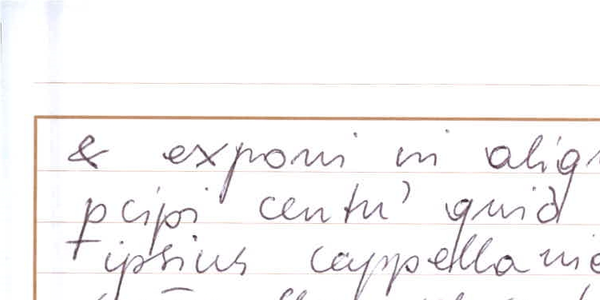 & exponi in aliq
pcipi centu' quid
ipsius cappellanie